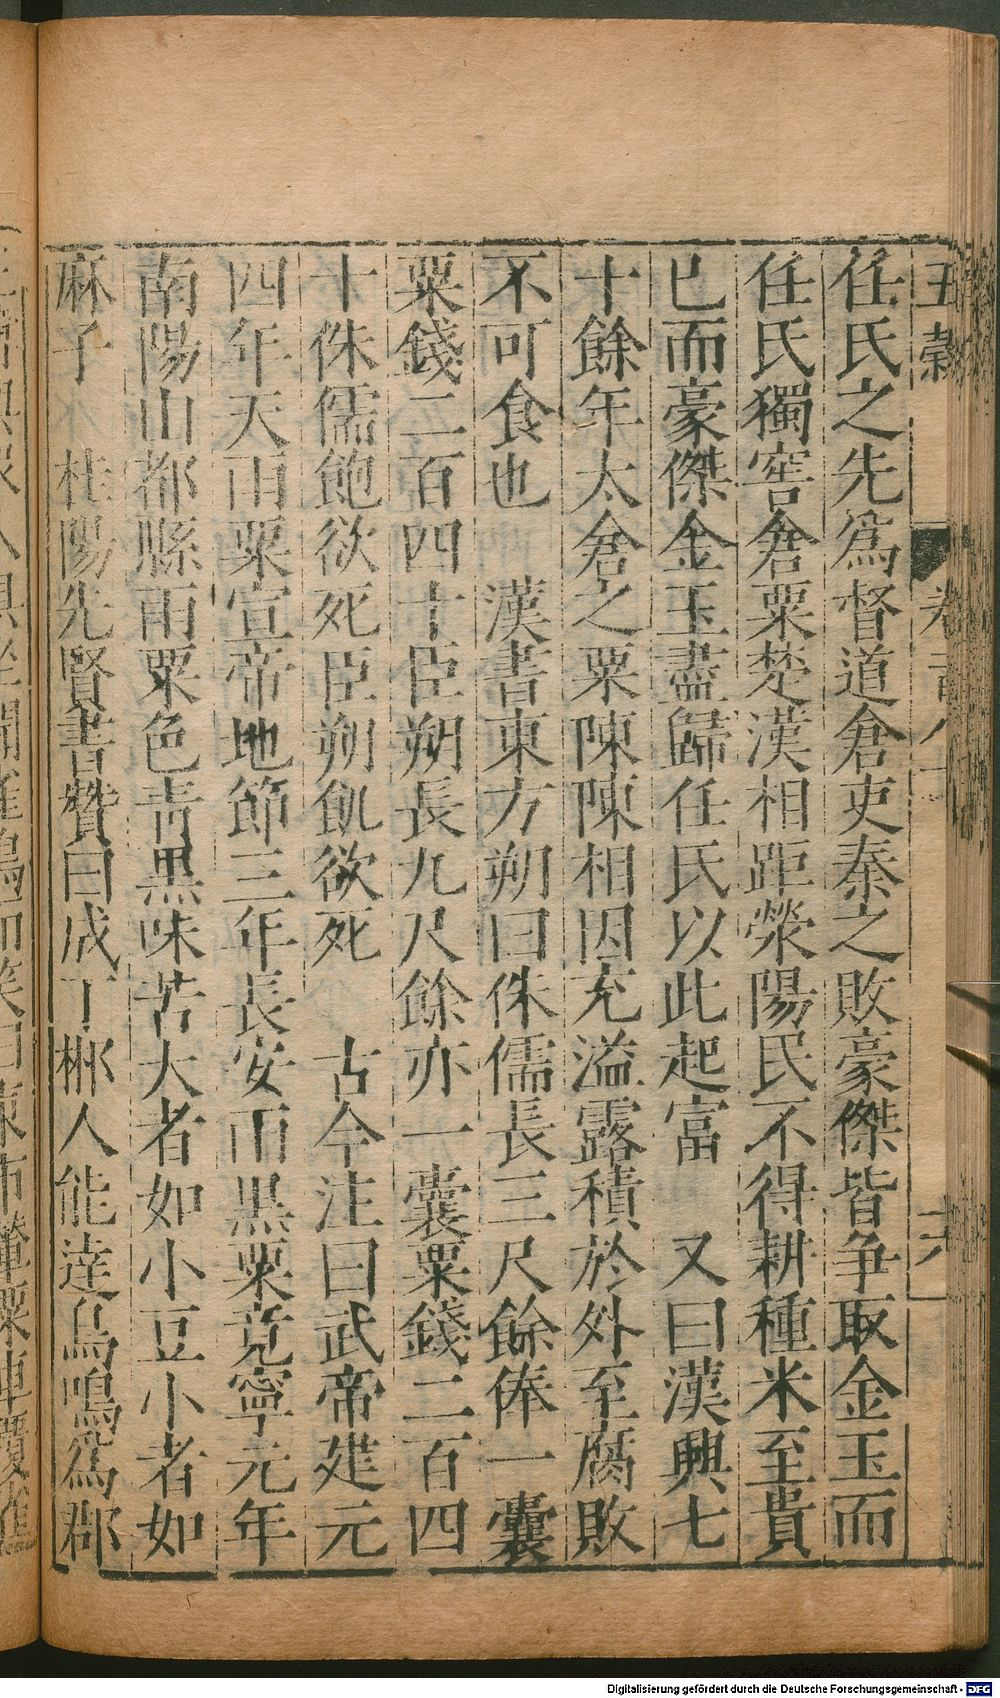 五穀
卷 六
任氏之先爲督道倉吏秦之敗豪傑皆争取金玉而
任氏獨窖倉粟楚漢相距滎陽民不得耕種米至貴
已而豪傑金玉盡歸任氏以此起富 又曰漢興七
十餘年太倉之粟陳陳相因充溢露積於外至腐敗
不可食也 漢書東方朔曰侏儒長三尺餘俸一囊
粟錢二百四十臣朔長九尺餘亦一囊粟錢二百四
十侏儒飽欲死臣朔飢欲死 古今注曰武帝建元
四年天雨粟宣帝地節三年長安雨黒粟竟寧元年
南陽山都縣雨粟色青黒味苦大者如小豆小者如
麻子 桂陽先賢書贊曰成丁郴人能達鳥鳴爲郡
Digitalisierung gefördert durch die Deutsche Forschungsgemeinschaft - DFG